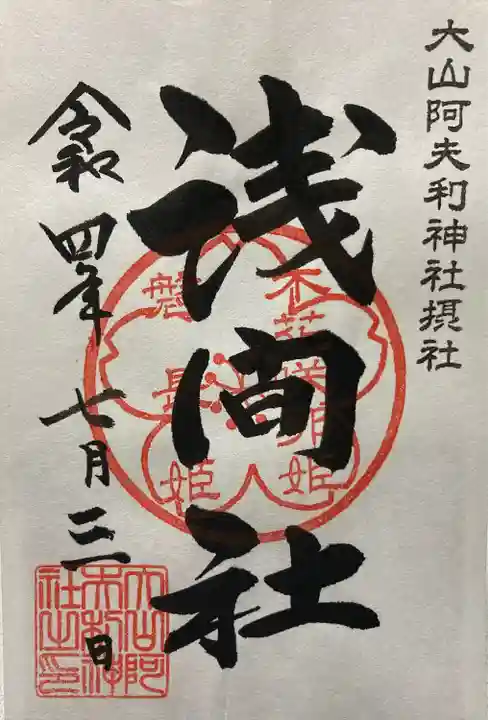 大山阿夫利神社摂社
浅間社
木花咲耶姫
磐長姫
令和四年七月三日
大山阿
夫利神
社之印